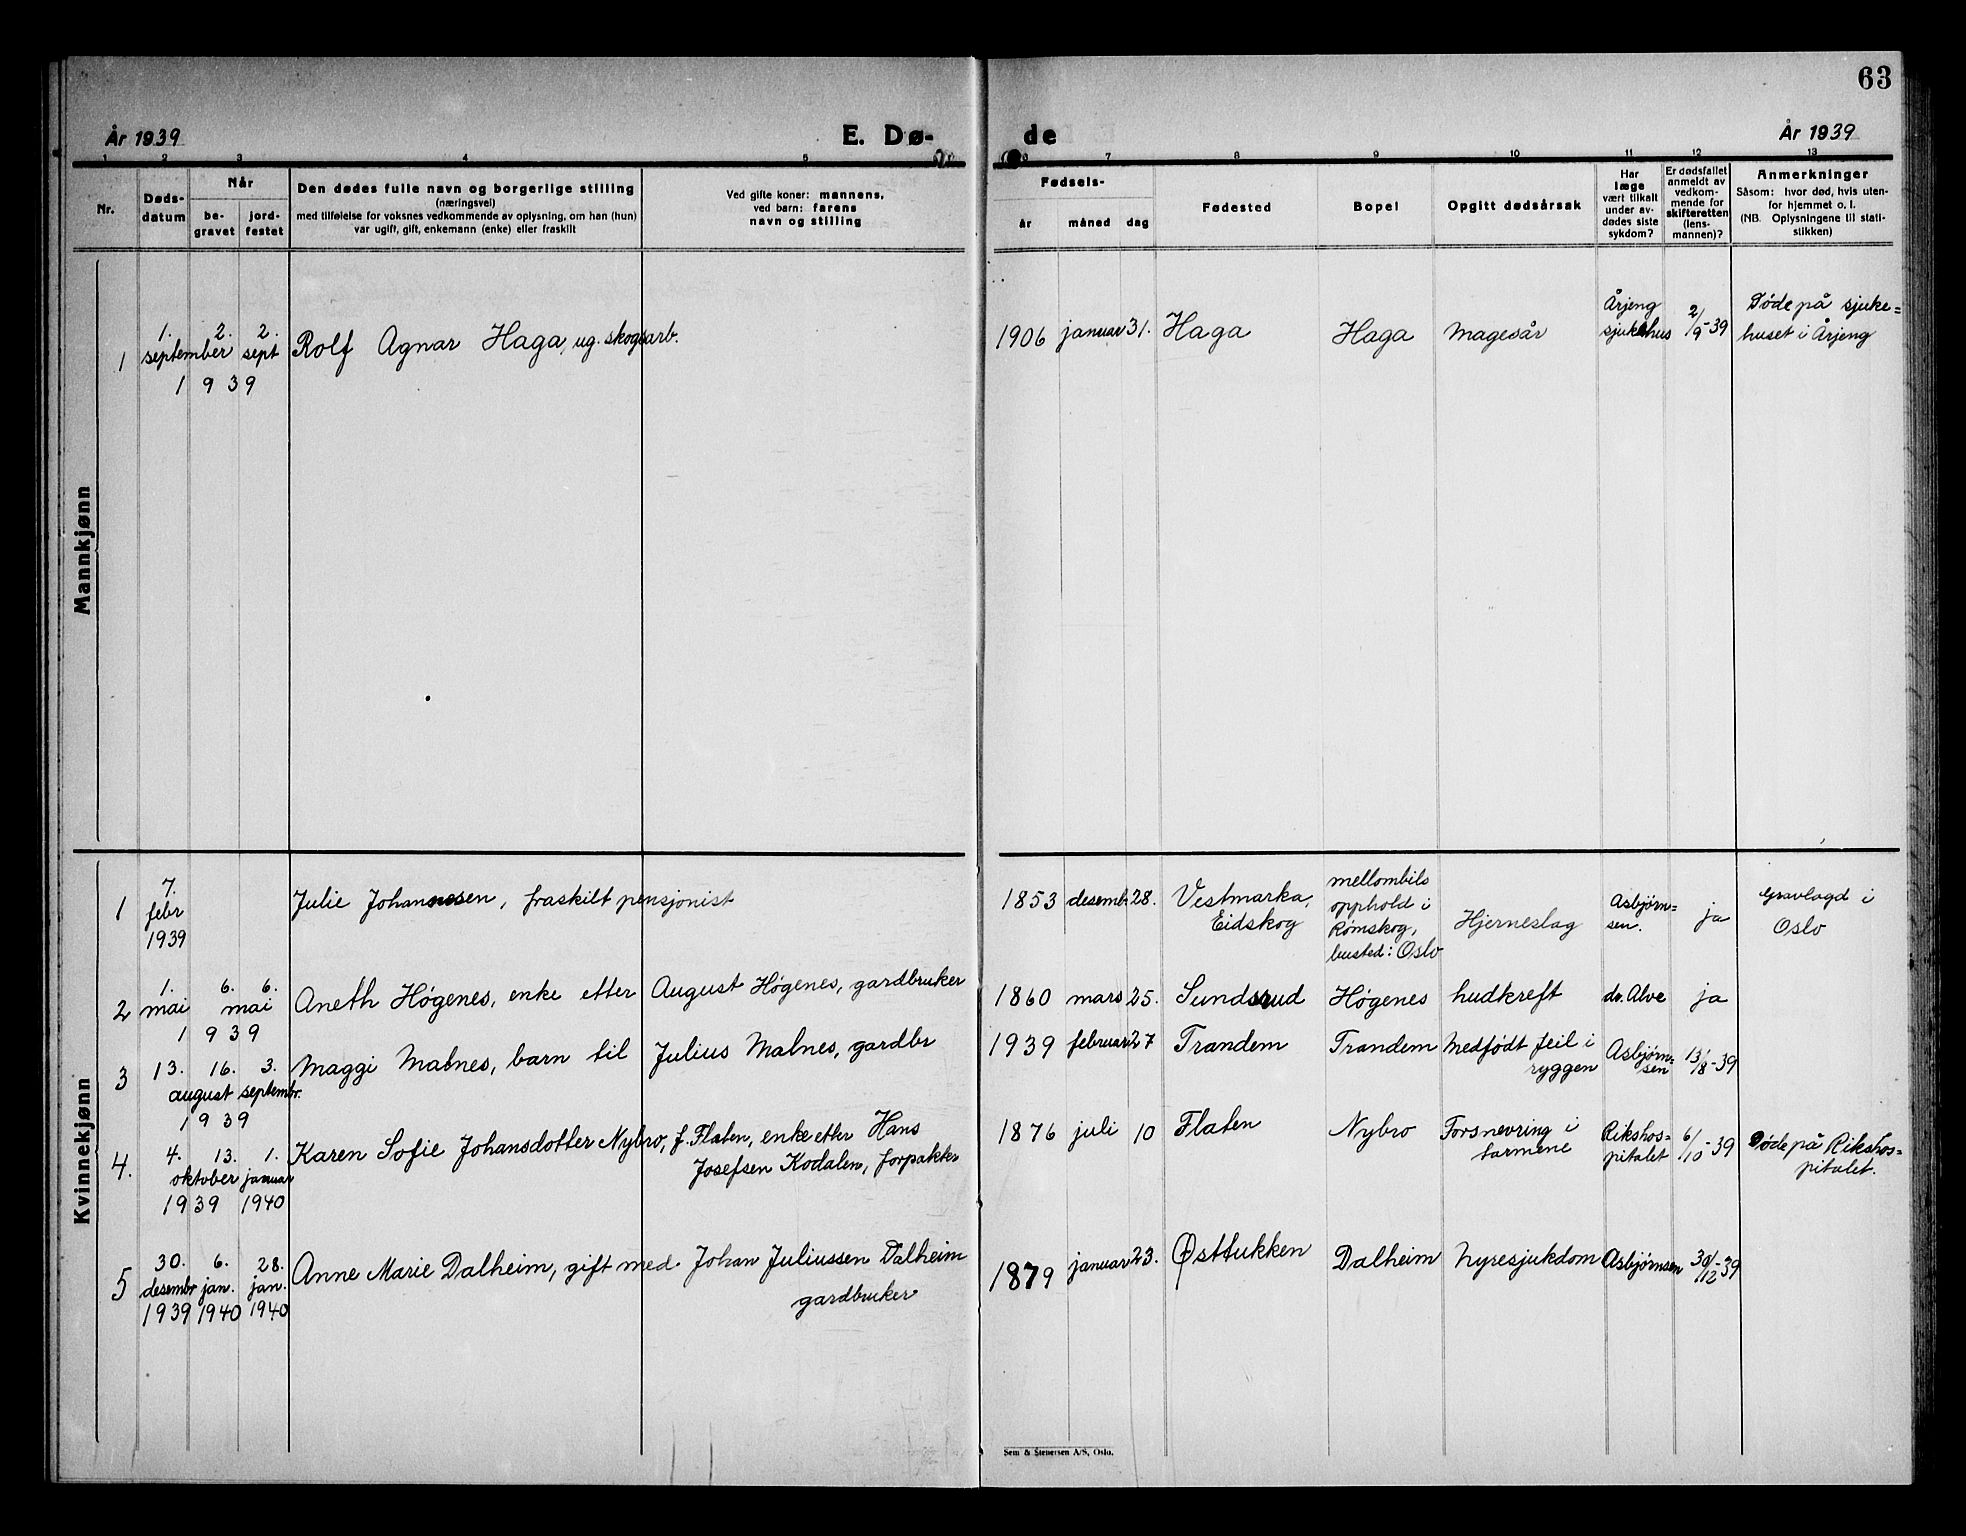 63
År 1939
E. Dø-
de
År 1939
1 2 3 4 5
6 7 8 9 10 11 12 13
Nr.
Døds-
datum
Når
be-
gravet
jord-
festet
Den dødes fulle navn og borgerlige stilling
(næringsvei)
med tilføielse for voksnes vedkommende av oplysning, om han (hun)
var ugift, gift, enkemann (enke) eller fraskilt
Ved gifte koner: mannens,
ved barn: farens
navn og stilling
Fødsels-
år
måned
dag
Fødested
Bopel
Opgitt dødsårsak
Har
læge
vært tilkalt
under av-
dødes siste
sykdom?
Er dødsfallet
anmeldt av
vedkom-
mende for
skifteretten
(lens-
mannen)?
Anmerkninger
Såsom: hvor død, hvis uten-
for hjemmet o. l.
(NB. Oplysningene til stati-
stikken)
Mannkjønn
1
1. 2. 2.
september sept
1939
Rolf Agnar Haga, ug. skogsarb.
1906 januar 31. Haga
Haga
Magesår
Årjeng
sjukehus
2/9-39
Døde på sjuke=
huset i Årjeng
Kvinnekjønn
1
7.
febr
1939
Julie Johannesen, fraskilt pensjonist
1853 desemb. 28.
Vestmarka,
Eidskog
mellombils
opphold i
Rømskog,
busted: Oslo
Hjerneslag
Asbjørn=
sen.
ja
Gravlagd i
Oslo
2
1. 6. 6.
mai mai
1939
Aneth Høgenes, enke etter August Høgenes, gardbruker
1860 mars 25. Sundsrud Høgenes hudkreft dr. Alve ja
3
13. 16. 3.
august septembr.
1939
Maggi Malnes, barn til Julius Malnes, gardbr
1939 februar 27 Trandem Trandem
Medfødt feil i
ryggen
Asbjørn=
sen
13/8-39
4.
4. 13. 1.
oktober januar
1939 1940
Karen Sofie Johansdotter Nybro, f. Flaten, enke etter Hans
Josefsen Kodalen, forpakter
1876 juli 10 Flaten Nybro
Forsnevring i
tarmene
Rikshos=
pitalet
6/10-39
Døde på Rikshos=
pitalet.
5
30. 6. 28.
desembr jan. jan.
1939 1940 1940
Anne Marie Dalheim, gift med Johan Juliussen Dalheim
gardbruker
1879 januar 23. Østtukken Dalheim Nyresjukdom Asbjørnsen 30/12-39
Sem & Stenersen A/S, Oslo.